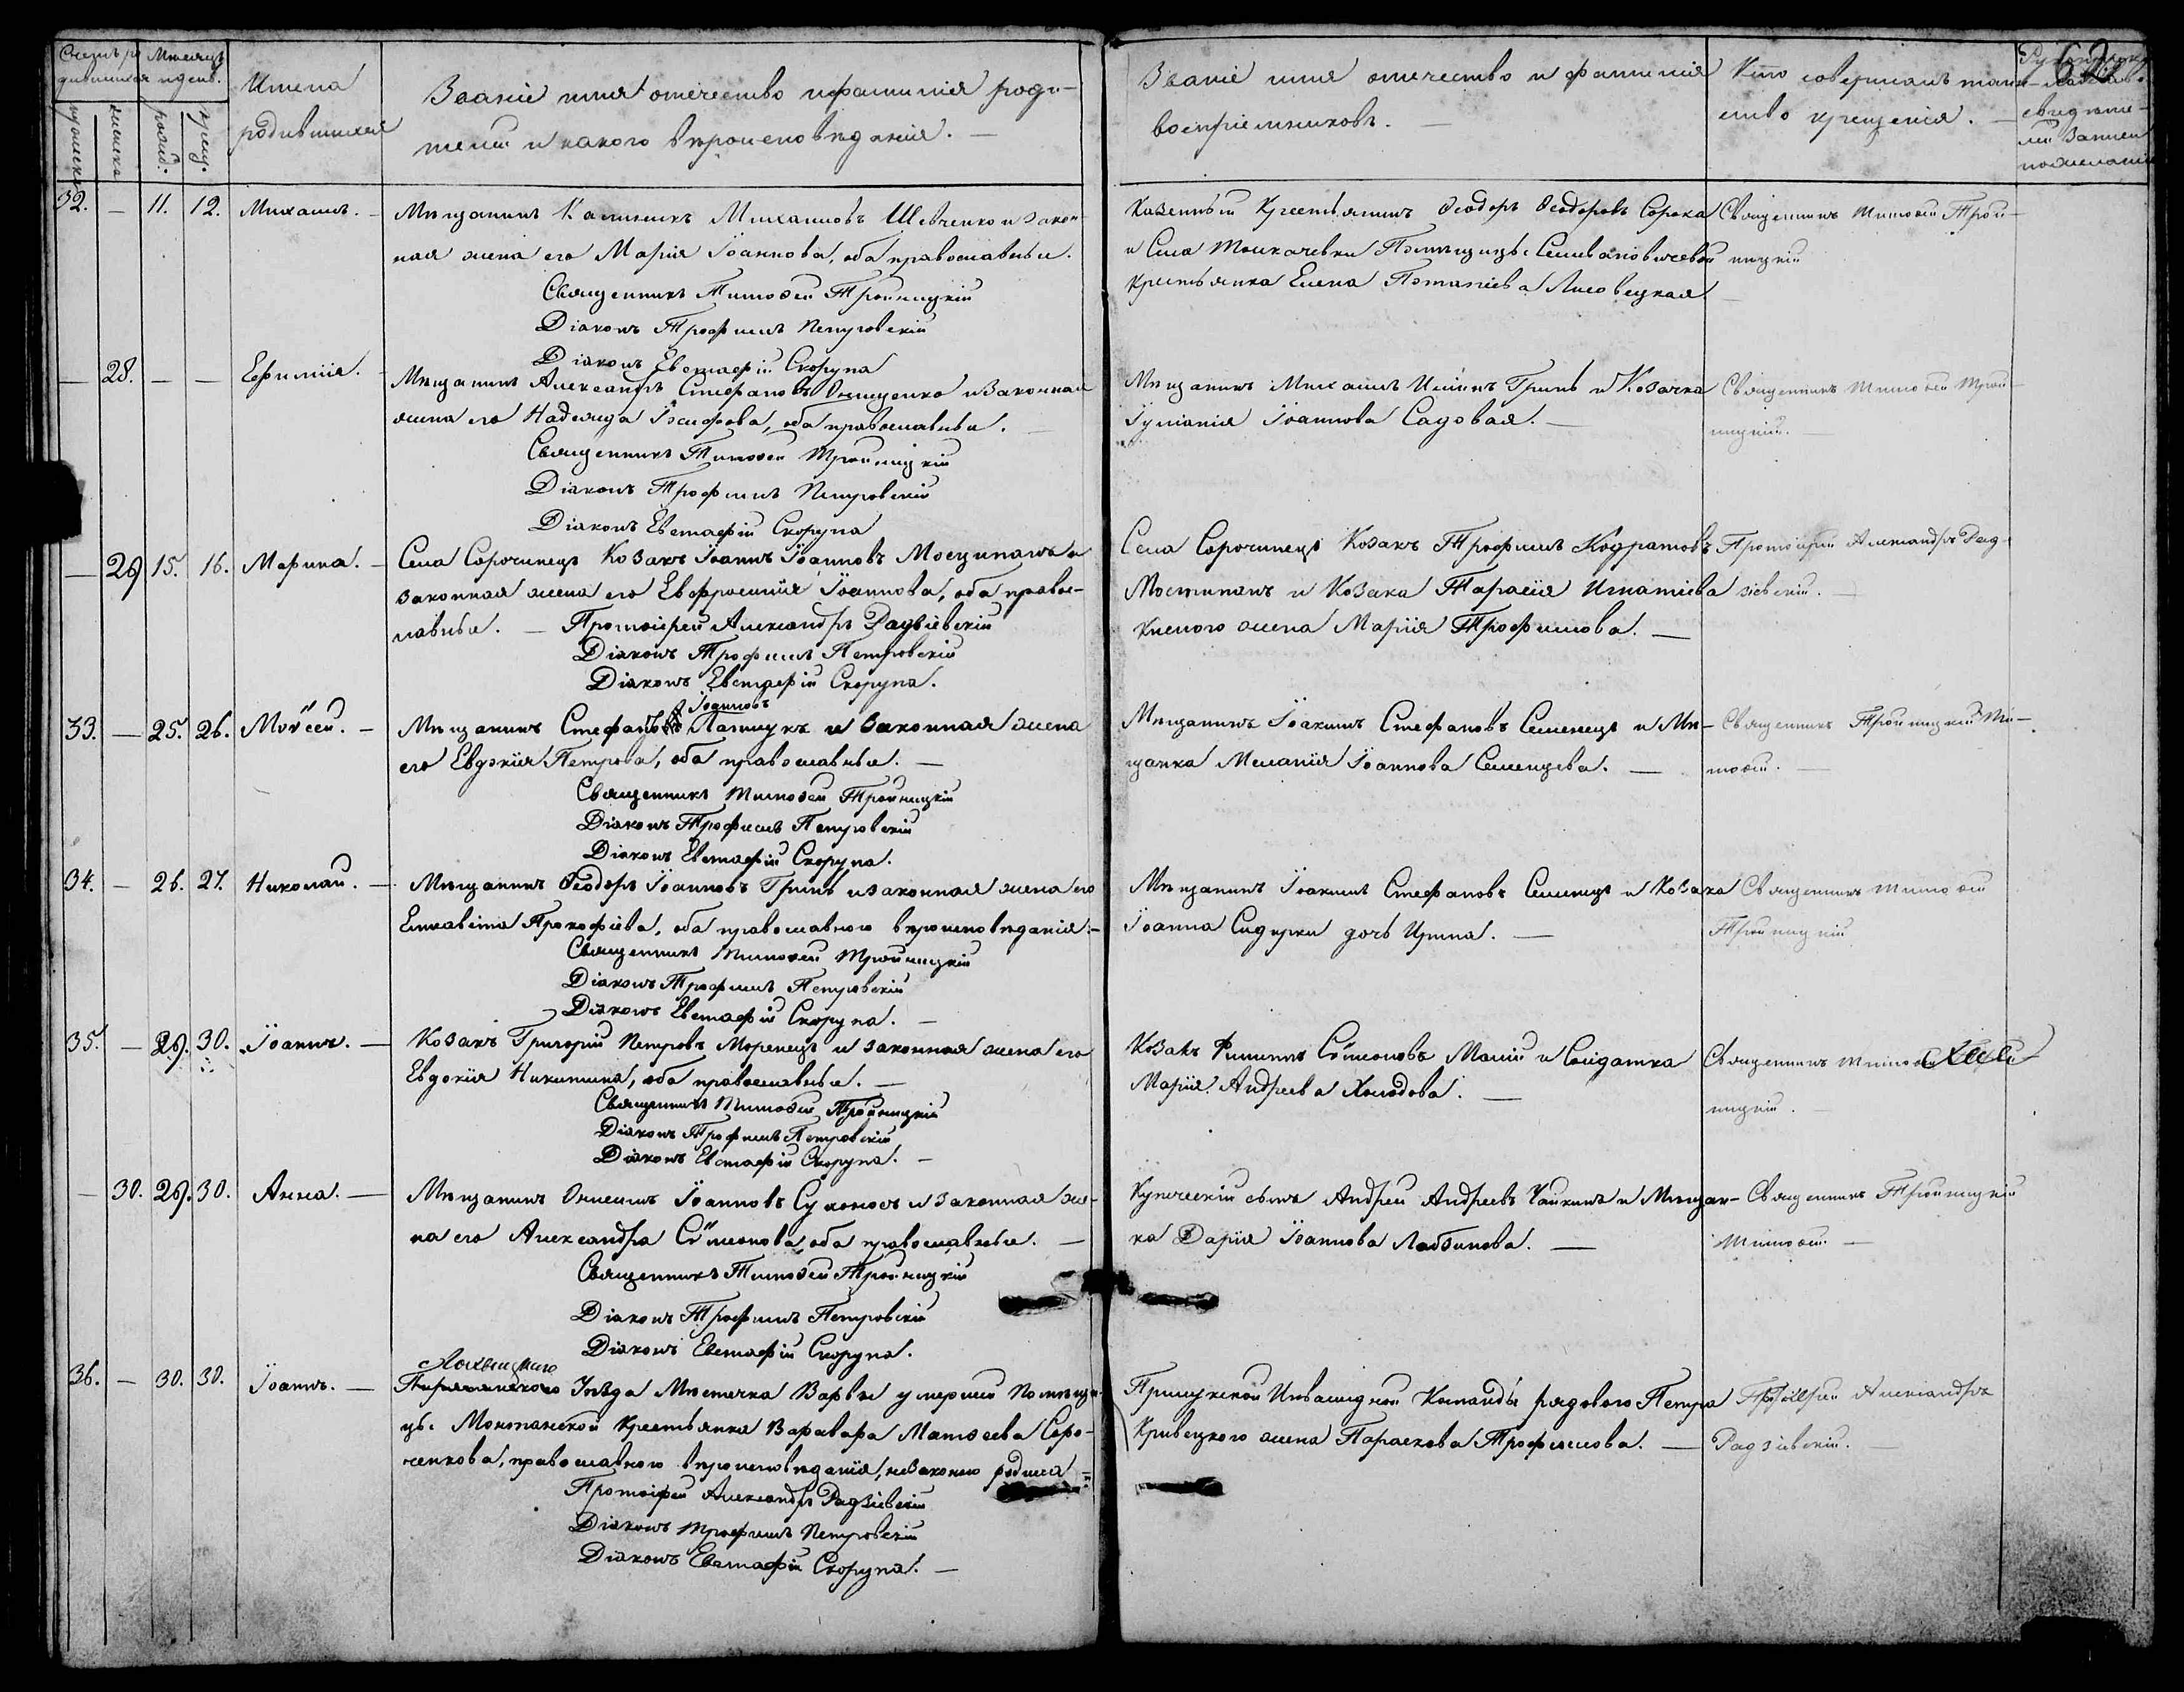 Счетъ ро Мѣсяцъ
дившихся и день.
мужеска женска рожд. крещ.
Имена
родившихся
Званіе имя отечество и фамилія роди-
телей и какого вѣроисповѣданія. —
Званіе имя отечество и фамилія
воспріемниковъ. —
Кто совершалъ таин-
ство крещенія. —
62
свидѣте-
лей записи
по желанію
32. — 11. 12. Михаилъ. — Мѣщанинъ Калиникъ Михаиловъ Шевченко и закон-
ная жена его Марія Іоаннова, оба православныи.
Священникъ Тимоѳей Тройницкій
Діаконъ Трофимъ Петровскій
Діаконъ Евстафій Скорупа
Казенный Крестьянинъ Ѳеодоръ Ѳеодоровъ Сорока
и Села Толкачевки Помѣщицы Селивановичевой
крестьянка Елена Потапіева Лисовецкая
Священникъ Тимоѳей Трой-
ницкій
— 28. — — Ефимія. — Мѣщанинъ Александръ Стефановъ Онищенко и Законная
жена его Надежда Іосифова, оба православныи. —
Священникъ Тимоѳей Тройницкій
Діаконъ Трофимъ Петровскій
Діаконъ Евстафій Скорупа
Мѣщанинъ Михаилъ Ильинъ Гринь и Козачка
Іуліанія Іоаннова Садовая. —
Священникъ Тимоѳей Трой-
ницкій. —
— 29 15. 16. Марина. — Села Сорочинецъ Козакъ Іоаннъ Іоанновъ Мосципанъ и
законная жена его Евфросинія Іоаннова, оба право-
славныи. — Протоіерей Александръ Радзіевскій
Діаконъ Трофимъ Петровскій
Діаконъ Евстафій Скорупа.
Села Сорочинецъ Козакъ Трофимъ Кодратовъ
Мостипанъ и Козака Тарасія Игнатіева
жена Марія Трофимова. —
Протоіерей Александръ Рад-
зіевскій. —
33. — 25. 26. Моѵсей. — Мѣщанинъ Стефанъ Іоанновъ Латшукъ и законная жена
его Евдокія Петрова, оба православныи. —
Священникъ Тимоѳей Тройницкій
Діаконъ Трофимъ Петровскій
Діаконъ Евстафій Скорупа.
Мѣщанинъ Іоакимъ Стефановъ Семенецъ и Мѣ-
щанка Меланія Іоаннова Семенцева. —
Священникъ Тройницкій Ти-
моѳей. —
34. — 26. 27. Николай. — Мѣщанинъ Ѳеодоръ Іоанновъ Гринь и законная жена его
Елисавета Прокофіева, оба православного вѣроисповѣданія. —
Священникъ Тимоѳей Тройницкій
Діаконъ Трофимъ Петровскій
Діаконъ Евстафій Скорупа. —
Мѣщанинъ Іоакимъ Стефановъ Семенецъ и Козака
Іоанна Сидерки дочь Ирина. —
Священникъ Тимоѳей
Тройницкій
35. — 29. 30. Іоаннъ. — Козакъ Григорій Петровъ Моренецъ и законная жена его
Евдокія Никитина, оба православныи. —
Священникъ Тимоѳей Тройницкій
Діаконъ Трофимъ Петровскій
Діаконъ Евстафій Скорупа. —
Козакъ Филиппъ Сѵмоновъ Малій и Солдатка
Марія Андреева Холодова. —
Священникъ Тимоѳей
ницкій. —
— 30. 29. 30. Анна. — Мѣщанинъ Онисимъ Іоанновъ Суконосъ и законная же-
на его Александра Сѵмонова оба православныи. —
Священникъ Тимоѳей Тройницкій
Діаконъ Трофимъ Петровскій
Діаконъ Евстафій Скорупа.
Купеческій сынъ Андрей Андреевъ Чайкинъ и Мѣщан-
ка Дарія Іоаннова Лабзинова. —
Священникъ Тройницкій
Тимоѳей. —
36. — 30. 30. Іоаннъ. — Лохвицкаго
Уѣзда Мѣстечка Варвы умершей Помѣщи-
цы Моктанской Крестьянка Варвара Матѳеева Соро-
ченкова, православного вѣроисповѣданія, незаконно родила —
Протоіерей Александръ Радзіевскій
Діаконъ Трофимъ Петровскій
Діаконъ Евстафій Скорупа. —
Прилукской Инвалидной Команды рядового Петра
Кривецкого жена Параскева Трофимова. —
Протоіерей Александръ
Радзіевскій. —